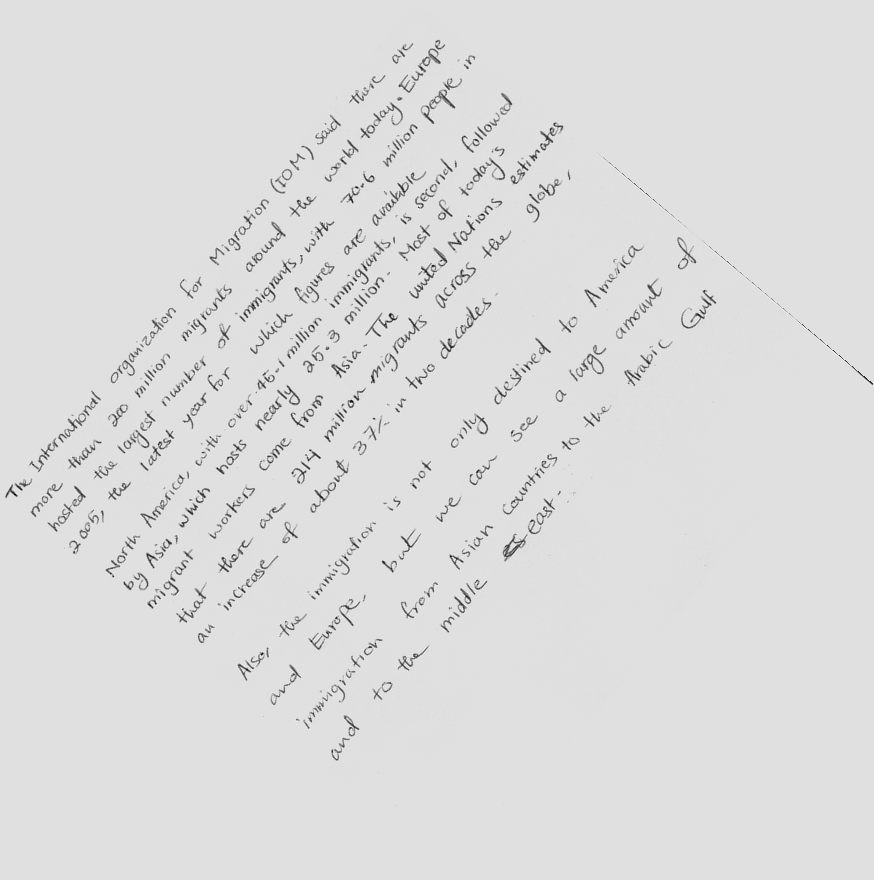 The International organization for Migration (IOM) said there are
more than 200 million migrants around the world today. Europe
hosted the largest number of immigrants, with 70.6 million people in
2005, the latest year for which figures are available
North America, with over 45.1 million immigrants, is second, followed
by Asia, which hosts nearly 25.3 million. Most of today's
migrant workers come from Asia. The united Nations estimates
that there are 214 million migrants across the globe,
an increase of about 37% in two decades.
Also, the immigration is not only destined to America
and Europe, but we can see a large amount of
immigration from Asian Countries to the Arabic Gulf
and to the middle east.